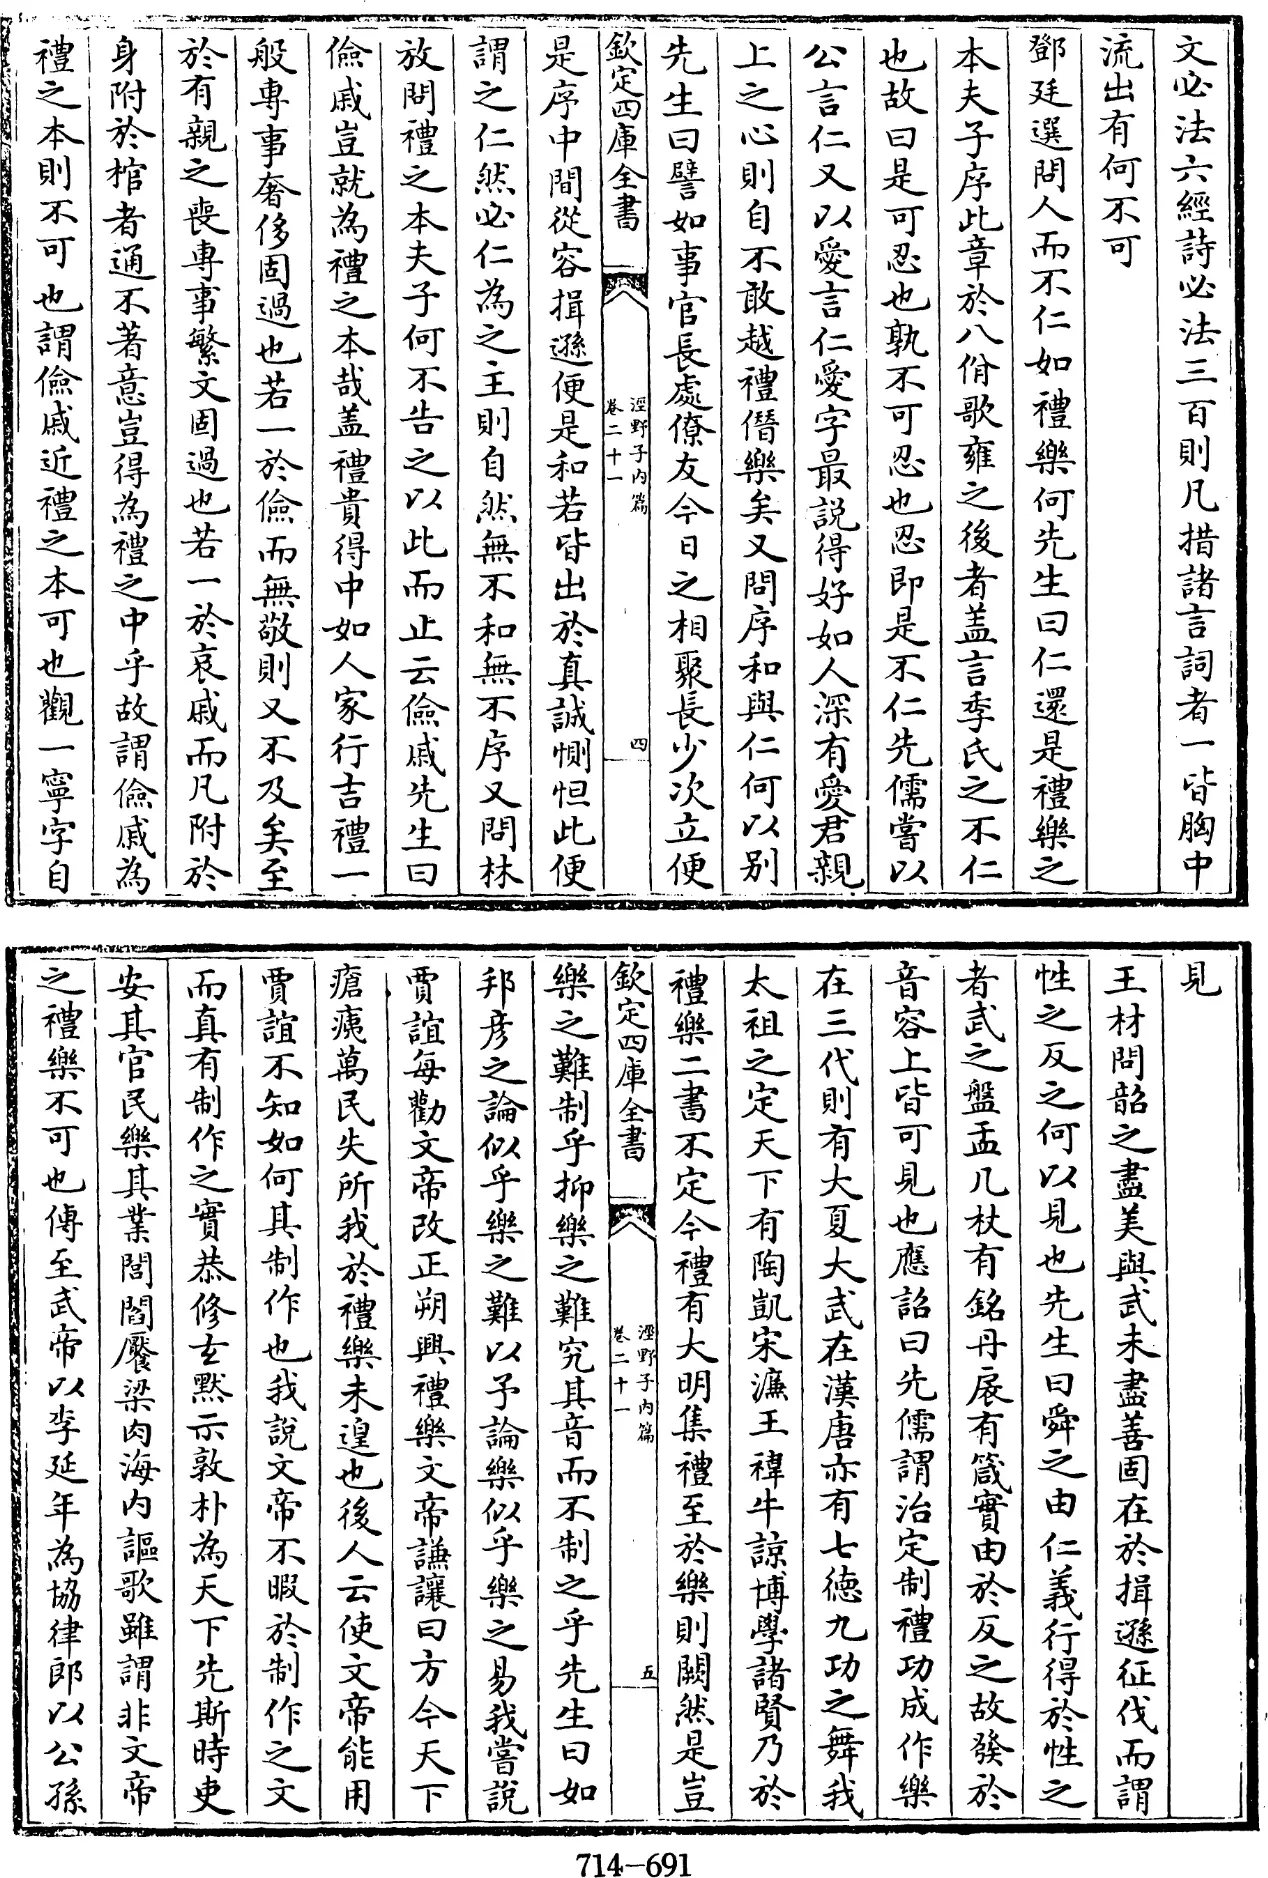 文必法六經詩必法三百則凡措諸言詞者一皆胸中
流出有何不可
鄧廷選問人而不仁如禮樂何先生曰仁還是禮樂之
本夫子序此章於八佾歌雍之後者盖言季氏之不仁
也故曰是可忍也孰不可忍也忍即是不仁先儒嘗以
公言仁又以愛言仁愛字最說得好如人深有愛君親
上之心則自不敢越禮僭樂矣又問序和與仁何以别
先生曰譬如事官長處僚友今日之相聚長少次立便
欽定四庫全書
涇野子內篇
卷二十一
四
是序中間從容揖遜便是和若皆出於真誠惻怛此便
謂之仁然必仁為之主則自然無不和無不序又問林
放問禮之本夫子何不告之以此而止云儉戚先生曰
儉戚豈就為禮之本哉盖禮貴得中如人家行吉禮一
般專事奢侈固過也若一於儉而無敬則又不及矣至
於有親之喪專事繁文固過也若一於哀戚而凡附於
身附於棺者通不著意豈得為禮之中乎故謂儉戚為
禮之本則不可也謂儉戚近禮之本可也觀一寧字自
見
王材問韶之盡美與武未盡善固在於揖遜征伐而謂
性之反之何以見也先生曰舜之由仁義行得於性之
者武之盤盂几杖有銘丹扆有箴實由於反之故發於
音容上皆可見也應詔曰先儒謂治定制禮功成作樂
在三代則有大夏大武在漢唐亦有七德九功之舞我
太祖之定天下有陶凱宋濂王禕牛諒博學諸賢乃於
禮樂二書不定今禮有大明集禮至於樂則闕然是豈
欽定四庫全書
涇野子內篇
卷二十一
五
樂之難制乎抑樂之難究其音而不制之乎先生曰如
邦彦之論似乎樂之難以予論樂似乎樂之易我嘗說
賈誼每勸文帝改正朔興禮樂文帝謙讓曰方今天下
瘡痍萬民失所我於禮樂未遑也後人云使文帝能用
賈誼不知如何其制作也我說文帝不暇於制作之文
而真有制作之實恭修玄默示敦朴為天下先斯時吏
安其官民樂其業閭閻饜梁肉海内謳歌雖謂非文帝
之禮樂不可也傳至武帝以李延年為協律郎以公孫
714-691